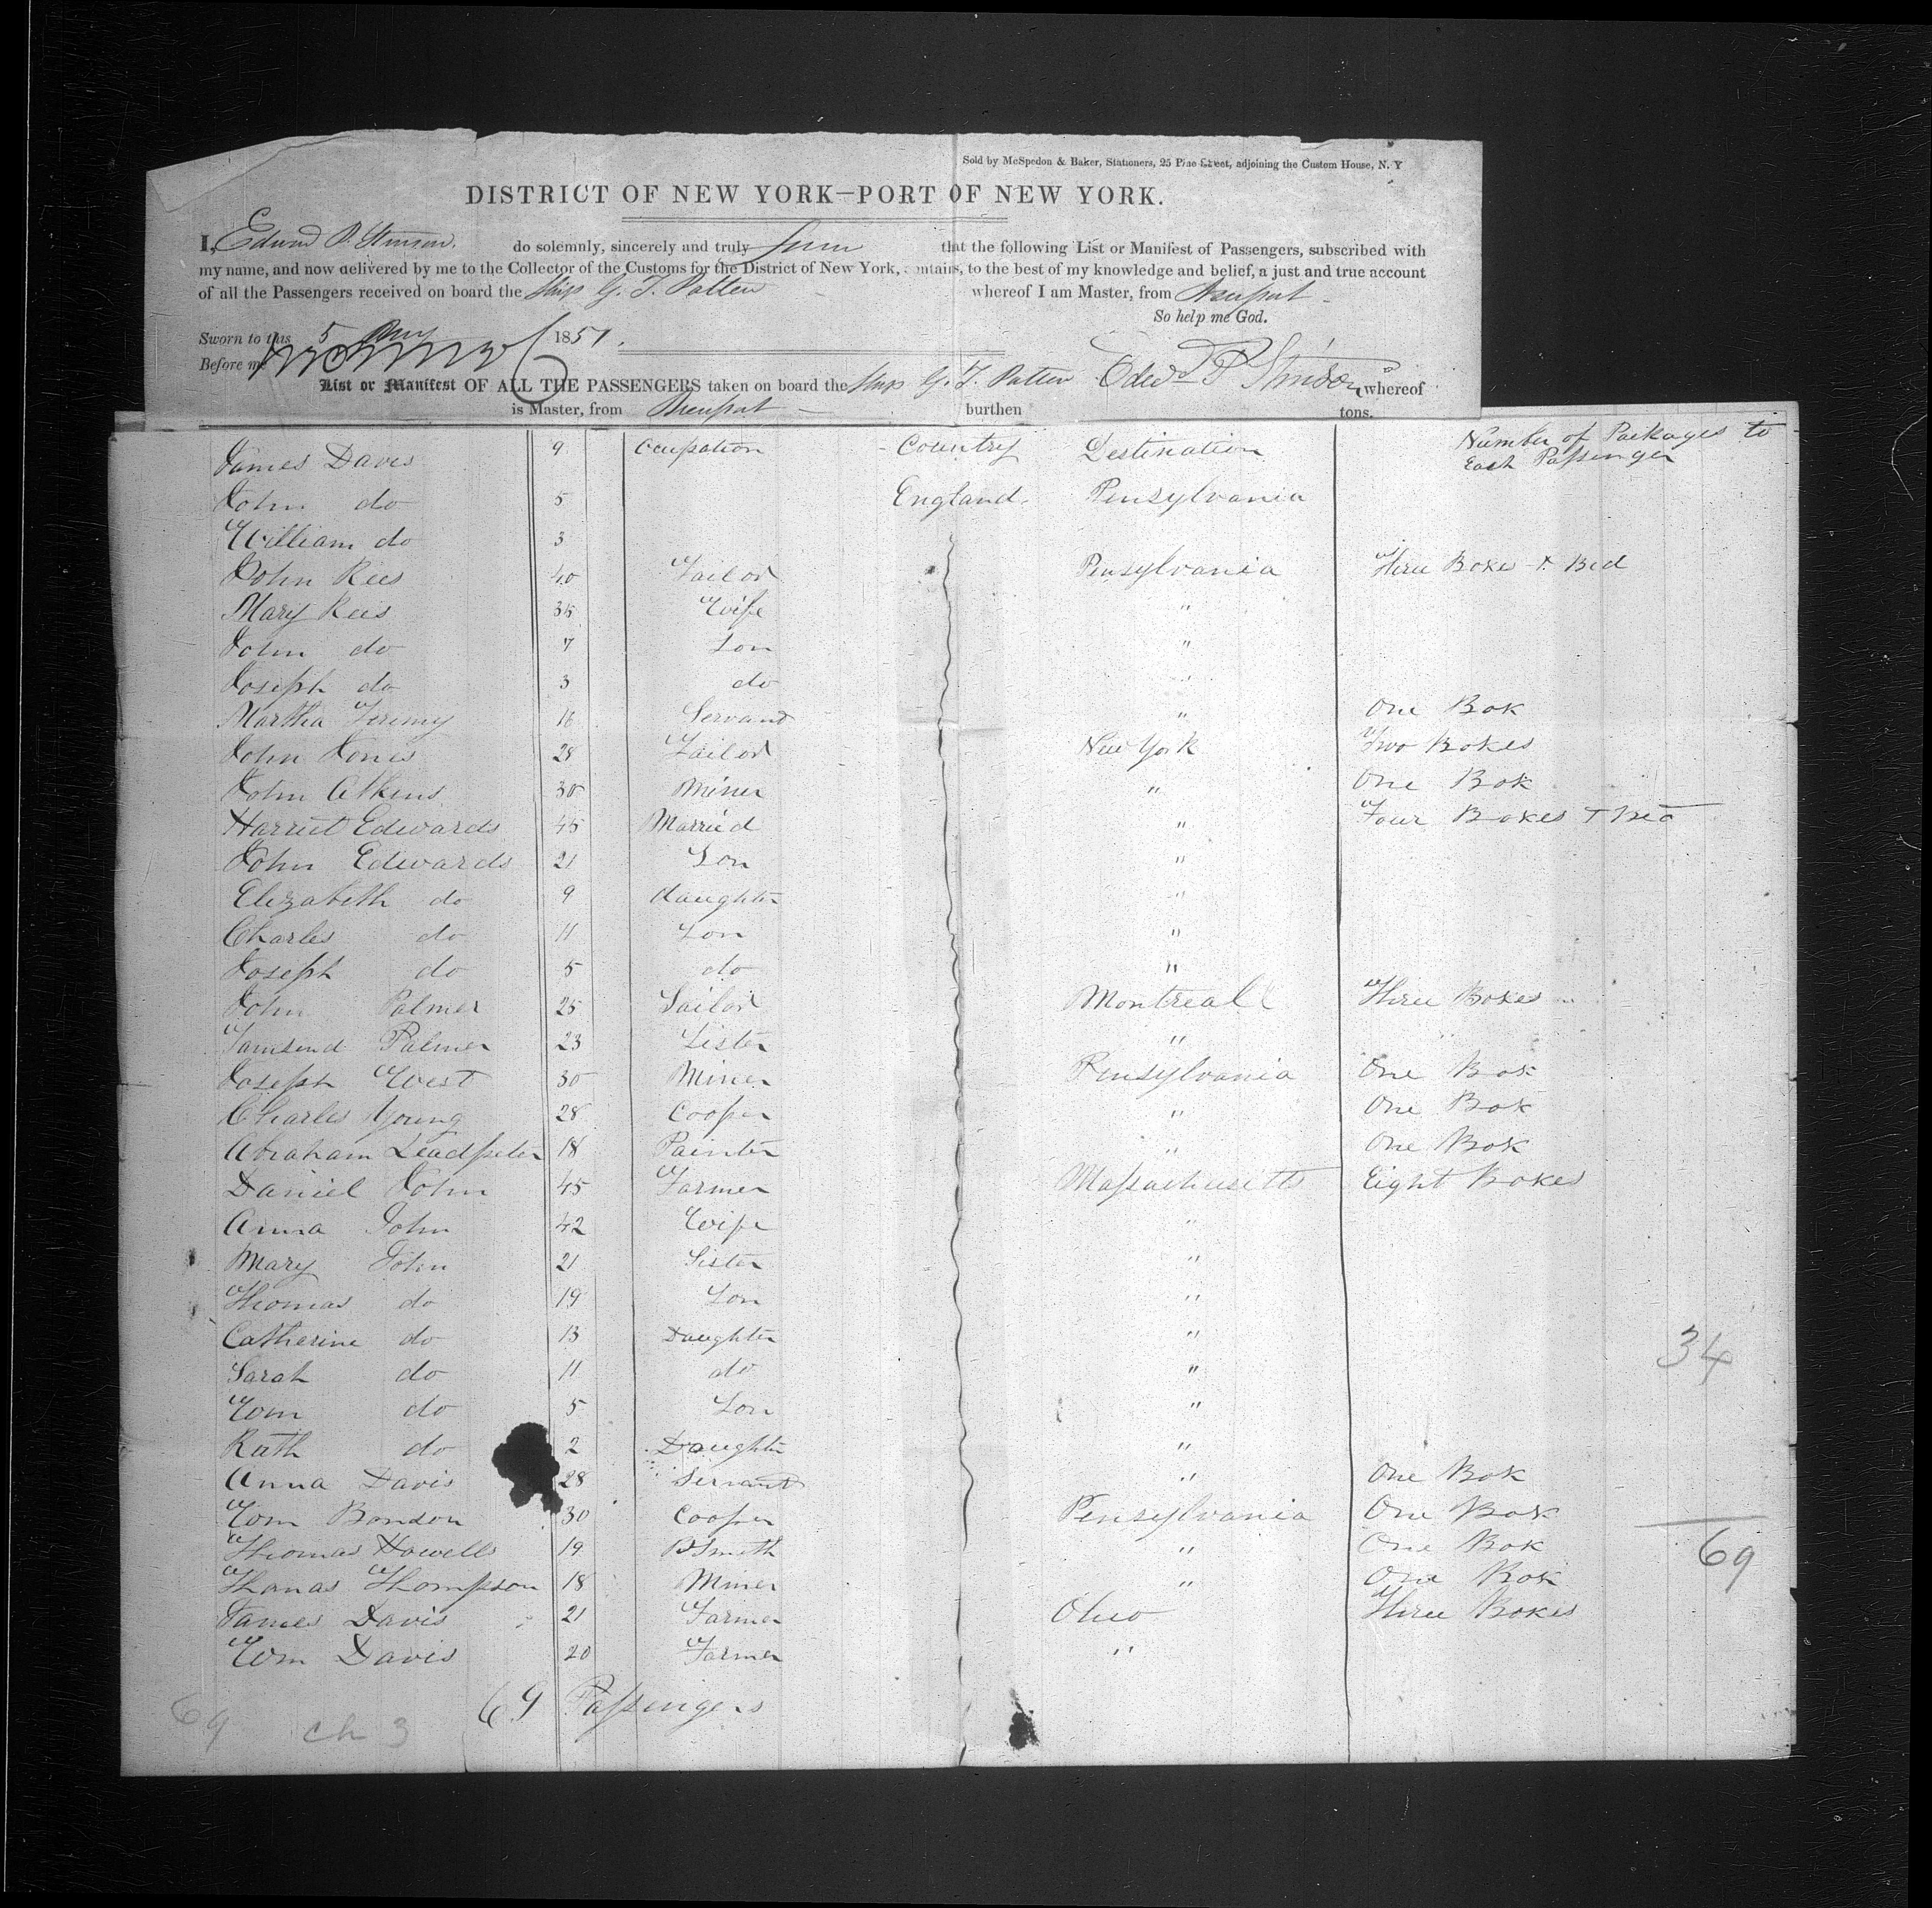 Sold by McSpedon & Baker, Stationers, 25 Pine Street, adjoining the Custom House, N. Y
DISTRICT OF NEW YORK—PORT OF NEW YORK.
I, Edward P. Stinson. do solemnly, sincerely and truly that the following List or Manifest of Passengers, subscribed with
my name, and now delivered by me to the Collector of the Customs for the District of New York, contains, to the best of my knowledge and belief, a just and true account
of all the Passengers received on board the Ship G. F. Patten whereof I am Master, from Newport
So help me God.
Sworn to this 5 1851.
Before me
List or Manifest OF ALL THE PASSENGERS taken on board the Ship G. F. Patten Edwd P Stinson whereof
is Master, from Newport burthen tons.
James Davis 9 Occupation Country Destination Number of Packages to Each Passenger
John do 5 England Pensylvania
William do 3
John Rees 40 Tailor Pensylvania Three Boxes & Bed
Mary Rees 35 Wife "
John do 7 Son "
Joseph do 3 do "
Martha Jeremy 16 Servant " One Box
John Jones 28 Tailor New York Two Boxes
John Atkins 30 Miner " One Box
Harriet Edwards 45 Married " Four Boxes & Bed
John Edwards 21 Son "
Elizabeth do 9 daughter "
Charles do 11 Son "
Joseph do 5 do "
John Palmer 25 Sailor Montreal Three Boxes
Tamsend Palmer 23 Sister "
Joseph West 30 Miner Pensylvania One Box
Charles Young 28 Cooper " One Box
Abraham Leadpeter 18 Painter " One Box
Daniel John 45 Farmer Massachusetts Eight Boxes
Anna John 42 Wife "
Mary John 21 Sister "
Thomas do 19 Son "
Catherine do 13 Daughter "
Sarah do 11 do " 34
Wm do 5 Son "
Ruth do 2 Daughter "
Anna Davis 28 Servant " One Box
Wm Bondon 30 Cooper Pensylvania One Box
Thomas Howells 19 BSmith " One Box 69
Thomas Thompson 18 Miner " One Box
James Davis 21 Farmer Ohio Three Boxes
Wm Davis 20 Farmer "
69 Passengers
69 ch 3